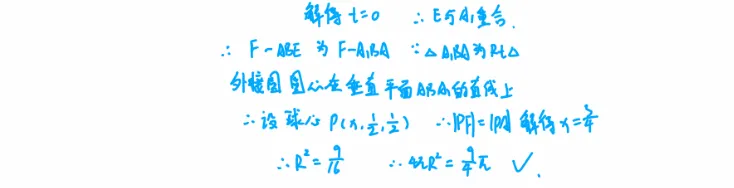 解得 t=0 ∴ E与A₁重合.
∴ F-ABE 为 F-A₁BA ∵ △A₁BA为Rt△
外接圆圆心在垂直平面ABA₁的直线上
∴ 设球心 P(x, 1/2, 1/2) ∴ |PF|=|PA| 解得 x=3/4
∴ R²=9/16 ∴ 4πR²=9/4 π ✓.